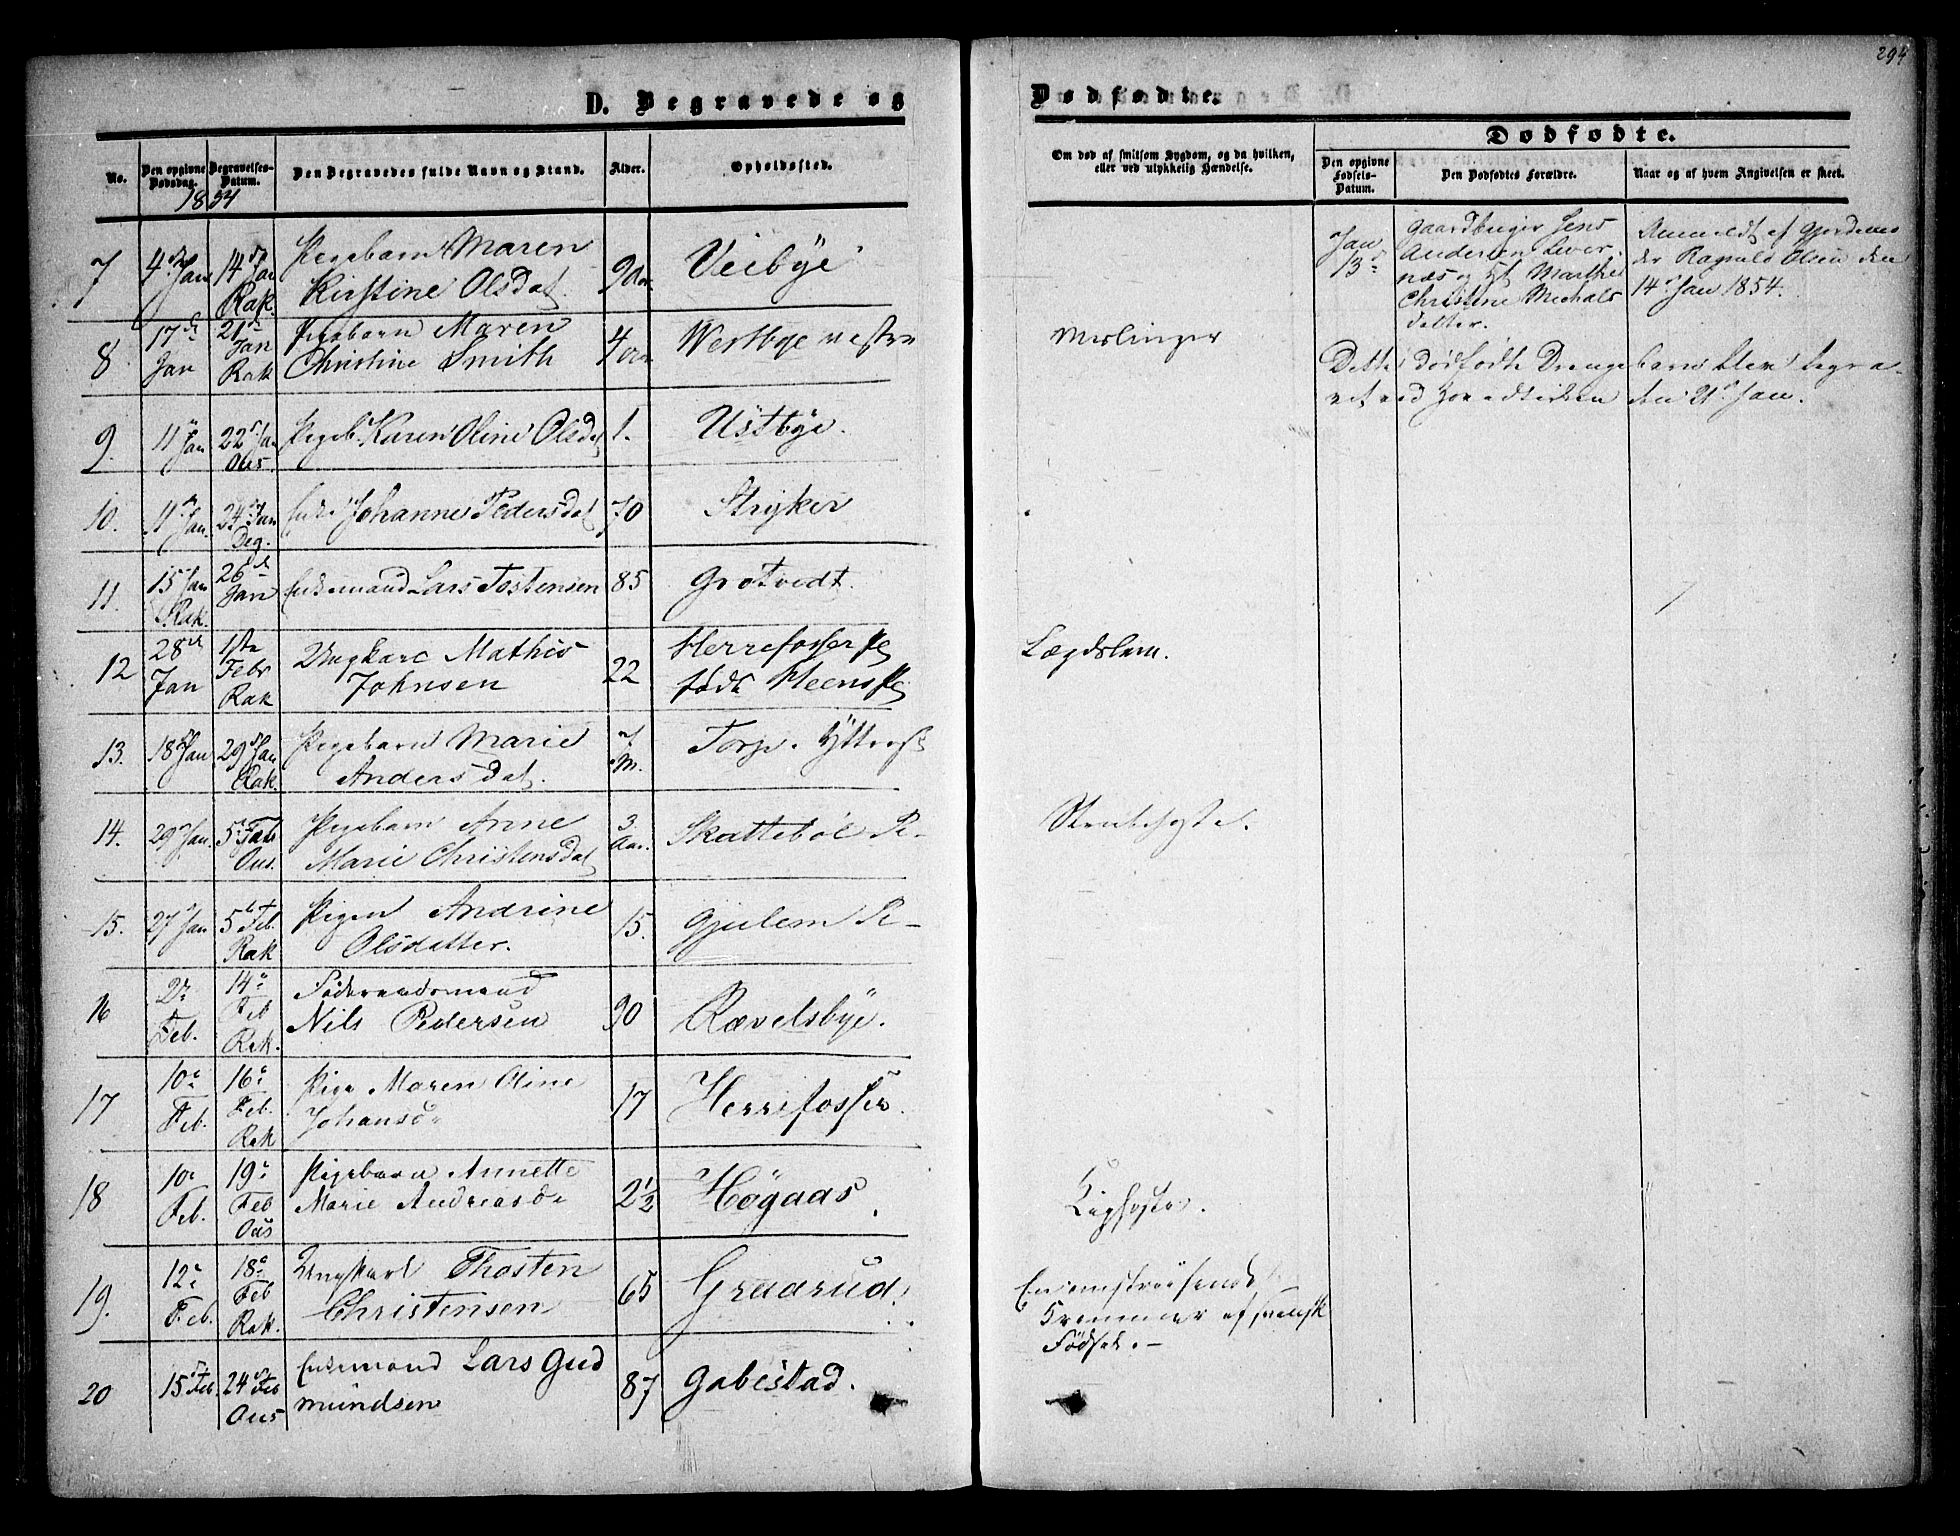 294
D. Begravede og Dødfødte.
No.
Den opgivne Dødsdag.
Begravelses-Datum.
Den Begravedes fulde Navn og Stand.
Alder.
Opholdssted.
Om død af smitsom Sygdom, og da hvilken,
eller ved ulykkelig Hændelse.
Dødfødte.
Den opgivne Fødsels-Datum.
Den Dødfødtes Forældre.
Naar og af hvem Angivelsen er skeet.
1854
7 4d Jan 14d Jan Rak Pigebarn Maren
Kirstine Olsdat. 9 Veibye
Jan 13d
Gaardbruger Jens
Andersen Lver-
næs og Marthe
Christine Michals
datter.
Anmeldt af
Ragnald Olsen den
14d Jan 1854.
8 17d Jan 21d Jan Rak Pigebarn Maren
Christine Smith 4 Westbye Meslinger
Dette dødfødte Drengebarn blev begra-
vet ved Hovedkirken den 21d Jan.
9. 11 Jan 22d Jan Ous. Pigeb. Karen Oline Olsdat 1. Ustbye.
10. 11d Jan. 24d Jan Deg. Enke Johanne Pedersdat 70 Stryker
11. 15 Jan Rak. 26d Jan Enkemand Lars Tostensen 85 Grotvedt.
12 28d Jan 1ste Febr Rak Ungkarl Mathis
Johnsen 22 Herrefosser
født Heens Lægdslem.
13. 18d Jan 29d Jan Rak. Pigebarn Marie
Andersdat. 7 M. Torp
14. 29d Jan. 5 Feb Ous. Pigebarn Anne
Marie Christensdat 3 Aar. Skattebøl Strubehoste.
15. 27d Jan 5t Feb. Rak Pigen Andrine
Olsdatter. 15. Gjulem
16 2d Feb. 14d Feb Rak. Føderaadsmand
Nils Pedersen 90 Rævelsbye.
17 10d Feb. 16d Feb. Rak Pige Maren Oline
Johansd 17 Herrefosser.
18 10d Feb. 19d Feb Ous Pigebarn Annette
Marie Andreasd 2½ Høgaas. Kighoste.
19. 12d Feb. 18d Feb Rak. Ungkarl Thosten
Christensen 65 Graarud. En omstreifende
Kræmmer af svensk
Fødsel.-
20 15d Feb. 24d Feb Ous Enkemand Lars Gud
mundsen 87 Gabestad.